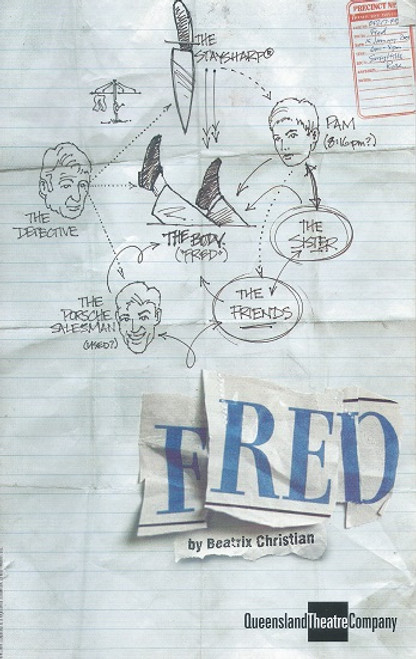 THE
STAYSHARP®
PRECINCT
PAM
(8:16pm?)
THE
DETECTIVE
THE BODY.
("FRED")
THE
SISTER
THE
PORSCHE
SALESMAN
(USED?)
THE
FRIENDS
FRED
by Beatrix Christian
QueenslandTheatreCompany